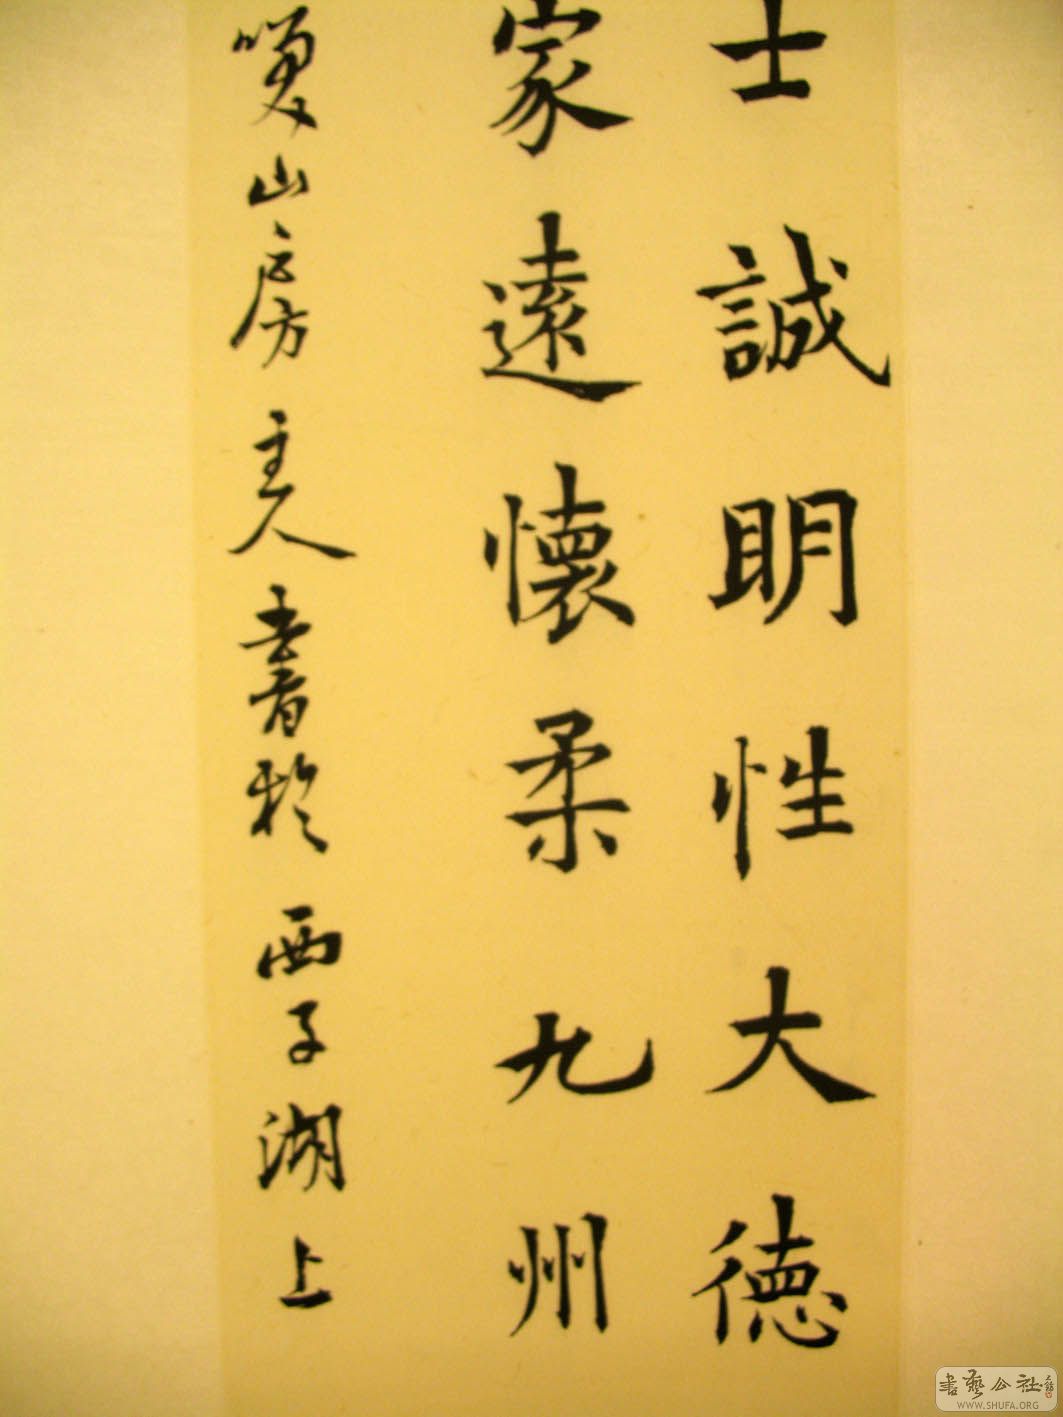 士誠明性大德
家遠懷柔九州
山房主人書於西子湖上
書藝公社
WWW.SHUFA.ORG